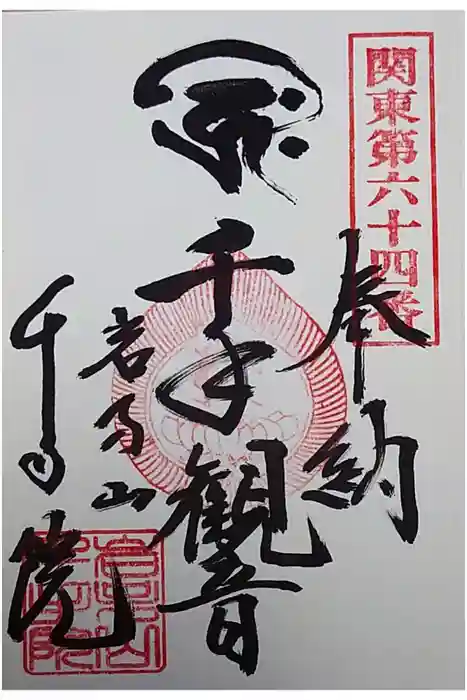 関東第六十四番
奉納
千手観音
千手院